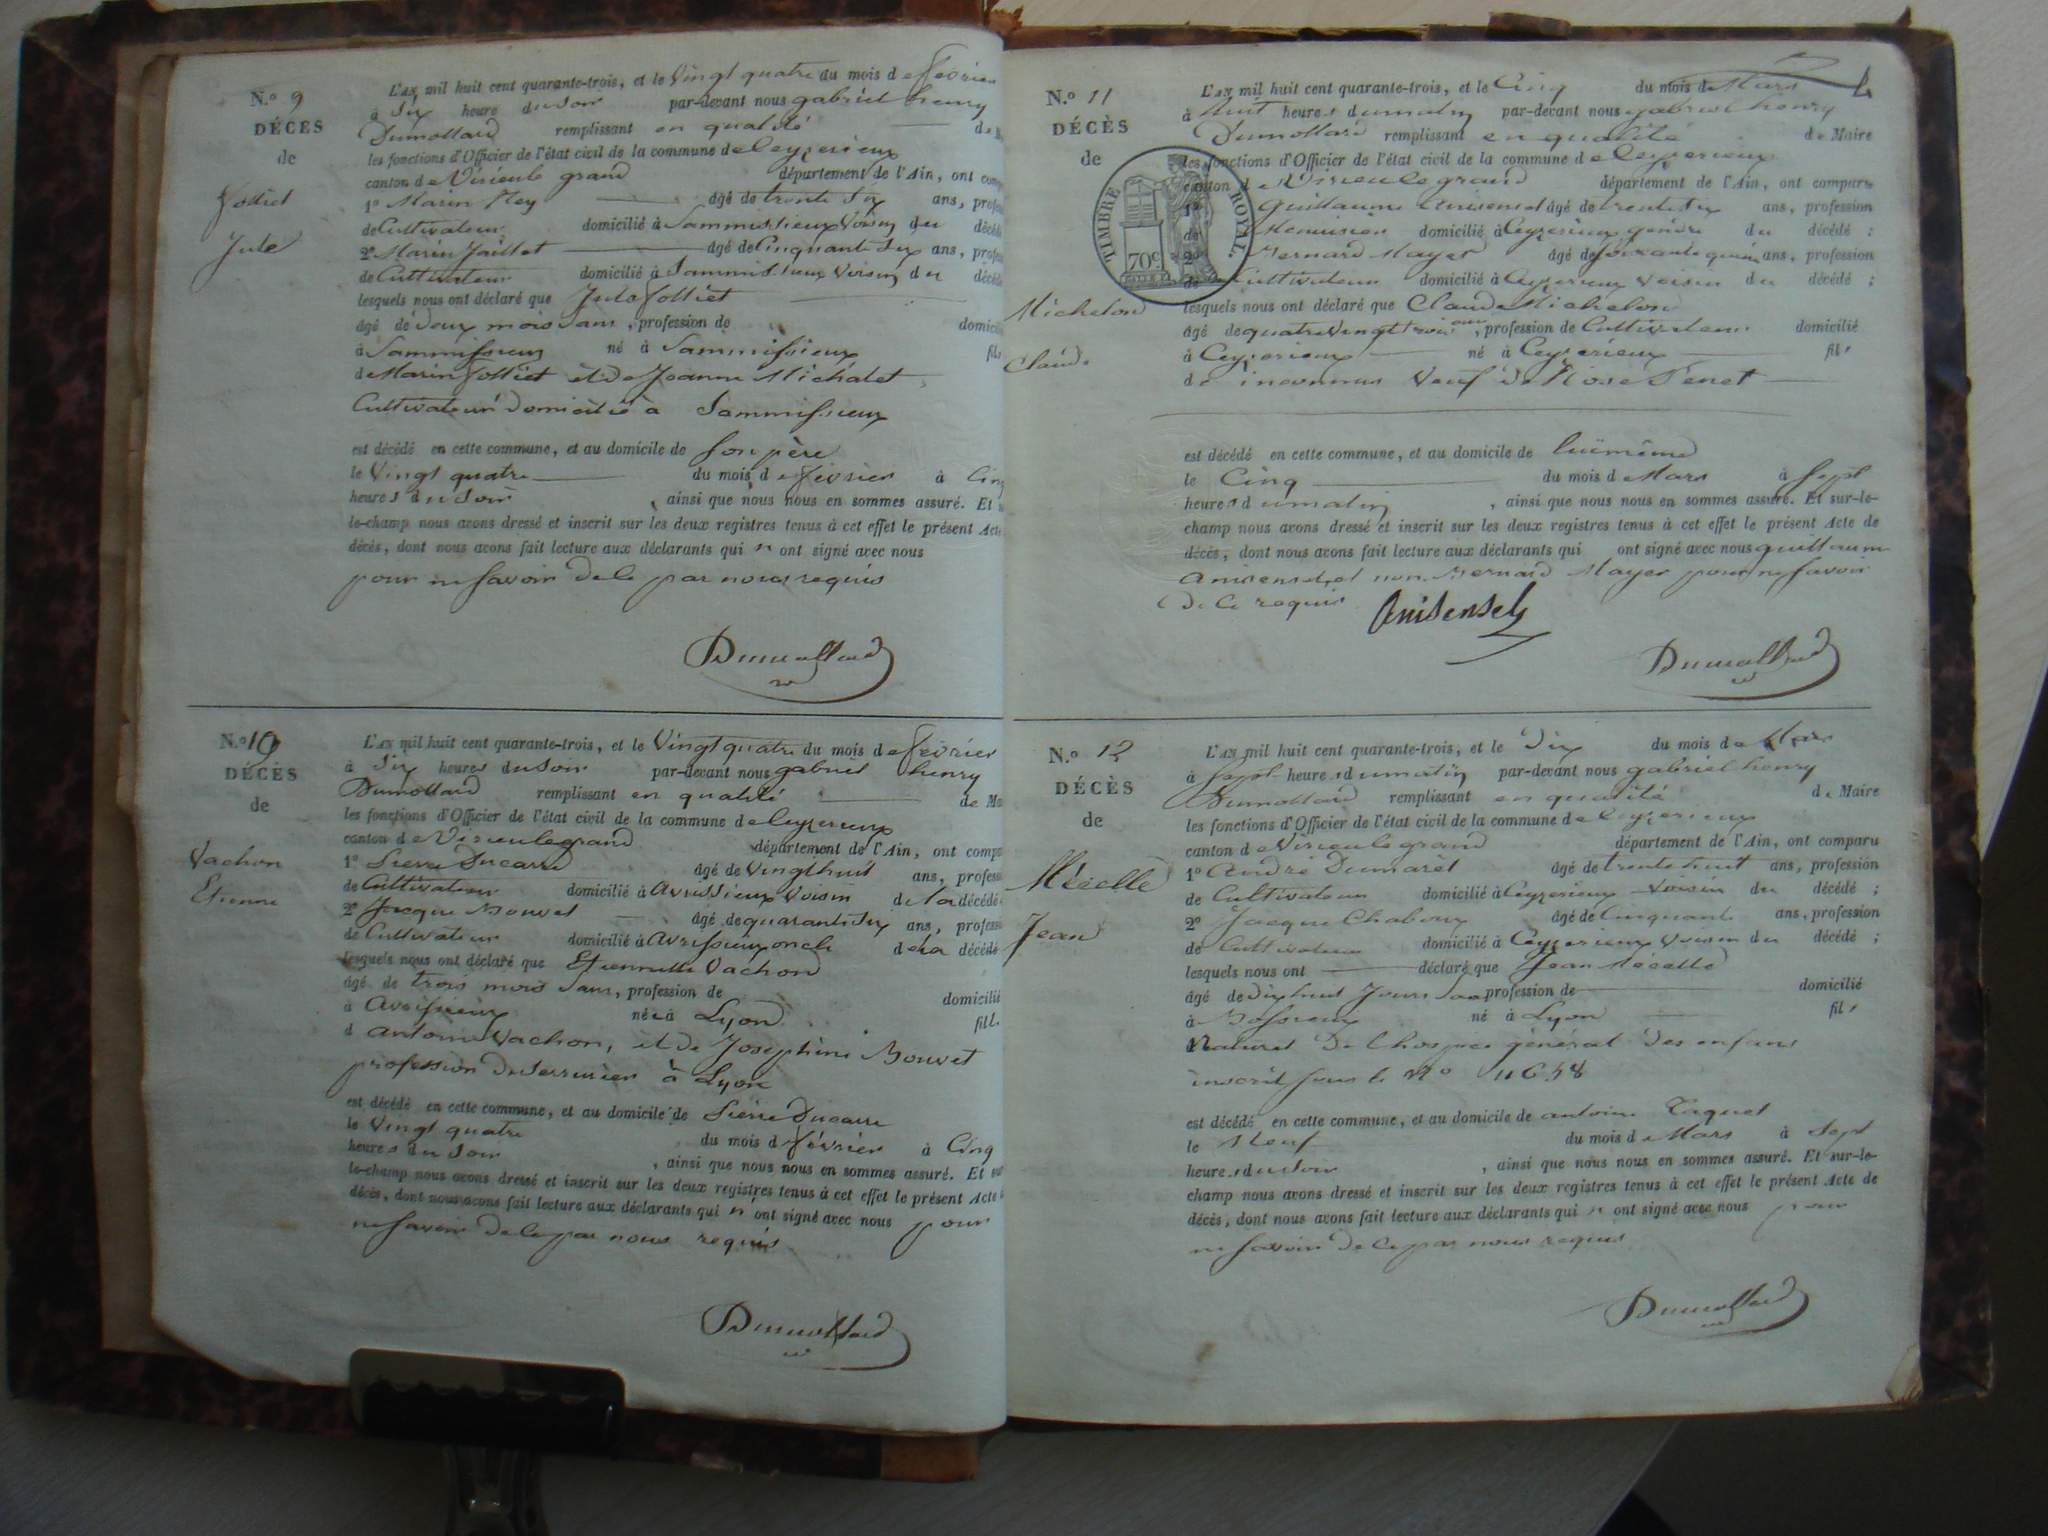 N.º 9
DÉCÈS
de
Jolliet
Jule
L'AN mil huit cent quarante-trois, et le Vingt quatre du mois de février
à Six heure du Soir par-devant nous gabriel henry
Dumollard remplissant en qualité de
les fonctions d'Officier de l'état civil de la commune de Ceyzerieux
canton de Virieu le grand département de l'Ain, ont comp
1º Marin Rey âgé de trente six ans, profes
de Cultivateur domicilié à Sammissieux Voisin du décédé
2º Marin Jaillet âgé de Cinquant Six ans, profes
de Cultivateur domicilié à Sammissieux Voisin du décédé
lesquels nous ont déclaré que Jule Jolliet
âgé de deux mois Sans , profession de domicilié
à Sammissieux né à Sammissieux fils
de Marin Jolliet et de Joanne Michalet
Cultivateur domicilié à Sammissieux
est décédé en cette commune, et au domicile de Son père
le Vingt quatre du mois de février à Cinq
heures du Soir , ainsi que nous nous en sommes assuré. Et
le-champ nous avons dressé et inscrit sur les deux registres tenus à cet effet le présent Acte
décès, dont nous avons fait lecture aux déclarants qui n ont signé avec nous
pour ne Savoir de Ce par nous requis
Dumollard
N.º 10
DÉCÈS
de
Vachon
Etienne
L'AN mil huit cent quarante-trois, et le Vingt quatre du mois de février
à Six heures du Soir par-devant nous gabriel henry
Dumollard remplissant en qualité de Ma
les fonctions d'Officier de l'état civil de la commune de Ceyzerieux
canton de Virieu le grand département de l'Ain, ont compa
1º Pierre Ducarre âgé de Vingt huit ans, profess
de Cultivateur domicilié à Avrissieux Voisin de la décédé
2º Jacque Bouvet âgé de quarante Six ans, profess
de Cultivateur domicilié à Avrissieux oncle de la décédé
lesquels nous ont déclaré que Etiennette Vachon
âgé de trois mois Sans, profession de domicilié
à Avrissieux née à Lyon fille
d antoine Vachon, et de Josephine Bouvet
profession de Serrurier à Lyon
est décédé en cette commune, et au domicile de Pierre Ducarre
le Vingt quatre du mois de février à Cinq
heures du Soir , ainsi que nous nous en sommes assuré. Et sur
le-champ nous avons dressé et inscrit sur les deux registres tenus à cet effet le présent Acte
décès, dont nous avons fait lecture aux déclarants qui n ont signé avec nous pour
ne Savoir de Ce par nous requis
Dumollard
N.º 11
DÉCÈS
de
TIMBRE ROYAL
70 c.
Michelon
Claude
L'AN mil huit cent quarante-trois, et le Cinq du mois de Mars
à huit heures du matin par-devant nous gabriel henry
Dumollard remplissant en qualité de Maire
les fonctions d'Officier de l'état civil de la commune de Ceyzerieux
canton de Virieu le grand département de l'Ain, ont comparu
1º Guillaume Anisensel âgé de trente Six ans, profession
de Menuisier domicilié à Ceyzerieux gendre du décédé ;
2º Bernard Mayer âgé de Soixante quinze ans, profession
de Cultivateur domicilié à Ceyzerieux Voisin du décédé ;
lesquels nous ont déclaré que Claude Michelon
âgé de quatre Vingt trois ans, profession de Cultivateur domicilié
à Ceyzerieux né à Ceyzerieux fils
de inconnus Veuf de Rose Penet
est décédé en cette commune, et au domicile de luimême
le Cinq du mois de Mars à Sept
heures du matin , ainsi que nous nous en sommes assuré. Et sur-le-
champ nous avons dressé et inscrit sur les deux registres tenus à cet effet le présent Acte de
décès, dont nous avons fait lecture aux déclarants qui ont signé avec nous guillaume
anisensel, et non Bernard Mayer pour ne Savoir
de Ce requis Anisensel
Dumollard
N.º 12
DÉCÈS
de
Mécelle
Jean
L'AN mil huit cent quarante-trois, et le Dix du mois de Mars
à Sept heures du matin par-devant nous gabriel henry
Dumollard remplissant en qualité de Maire
les fonctions d'Officier de l'état civil de la commune de Ceyzerieux
canton de Virieu le grand département de l'Ain, ont comparu
1º André Dumarêt âgé de trente huit ans, profession
de Cultivateur domicilié à Ceyzerieux Voisin du décédé ;
2º Jacque Chaboux âgé de Cinquante ans, profession
de Cultivateur domicilié à Ceyzerieux Voisin du décédé ;
lesquels nous ont déclaré que Jean Mécelle
âgé de dix huit Jours Sans profession de domicilié
à né à Lyon fils
Naturel De l'hospice général des enfans
inscrit Sous le Nº 11658
est décédé en cette commune, et au domicile de antoine Taquet
le Neuf du mois de Mars à Sept
heures du Soir , ainsi que nous nous en sommes assuré. Et sur-le-
champ nous avons dressé et inscrit sur les deux registres tenus à cet effet le présent Acte de
décès, dont nous avons fait lecture aux déclarants qui n ont signé avec nous pour
ne Savoir de Ce par nous requis
Dumollard